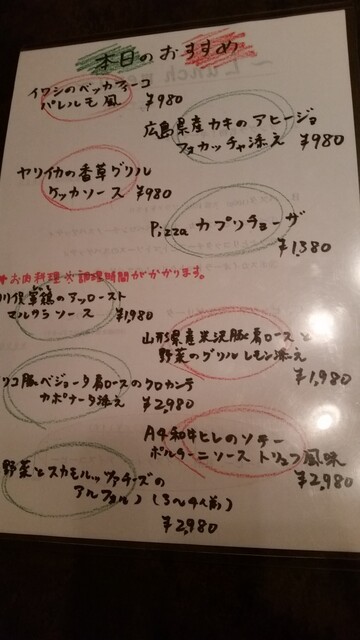 本日のおすすめ
イワシのベッカフィーコ
パレルモ風 ¥980
広島県産カキのアヒージョ
フォカッチャ添え ¥980
ヤリイカの香草グリル
ケッカソース ¥980
Pizza カプリチョーザ
¥1,380
お肉料理 調理時間がかかります。
川俣軍鶏のアッロースト
マルサラソース ¥1,980
山形県産米沢豚肩ロースと
野菜のグリル レモン添え
¥1,980
豚ベジョータ肩ロースのクロカンテ
カポナータ添え ¥2,980
A4和牛ヒレのソテー
ポルチーニソース トリュフ風味
¥2,980
野菜とスカモルツァチーズの
アルフォルノ (3〜4人前)
¥2,980